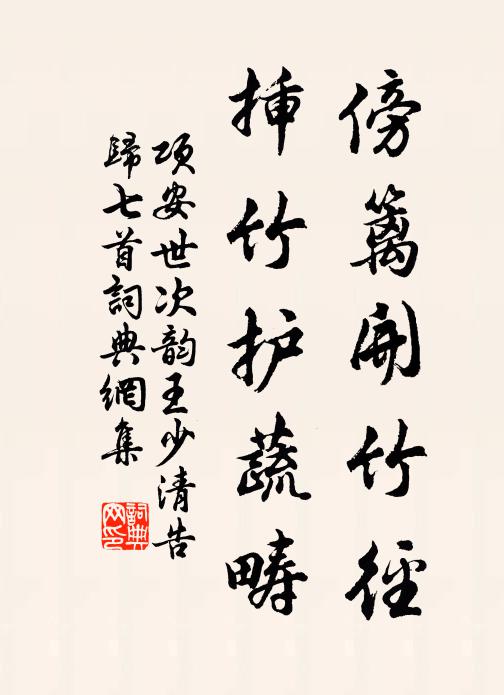 傍篱开竹径
插竹护蔬畴
项安世次韵王少清告
歸七首詞典網集
詞典
网印